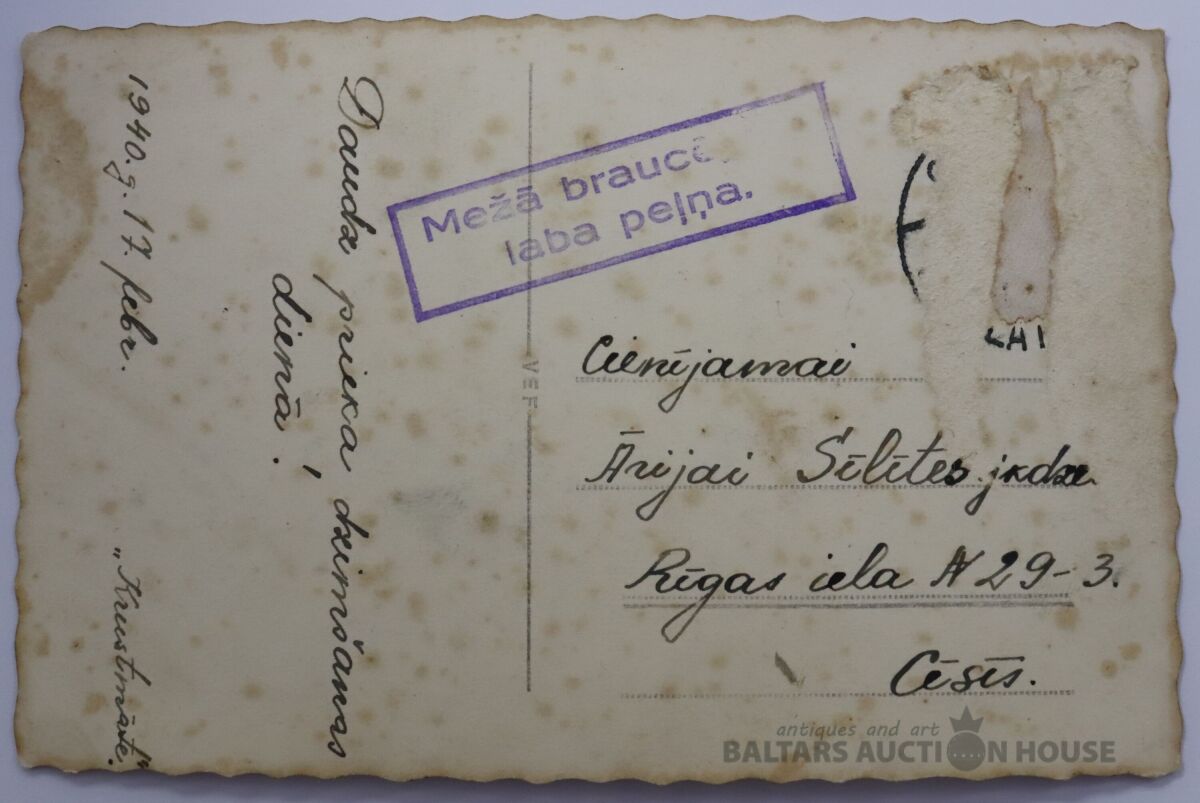 1940.g. 17. febr.
Daudz prieka dzimšanas
dienā!
„Krustmāte”
Mežā
laba peļņa.
VEF
Cienījamai
Ārijai Sīlītes jkdze.
Rīgas iela N 29-3.
Cēsīs.
antiques and art
BALTARS AUCTION HOUSE